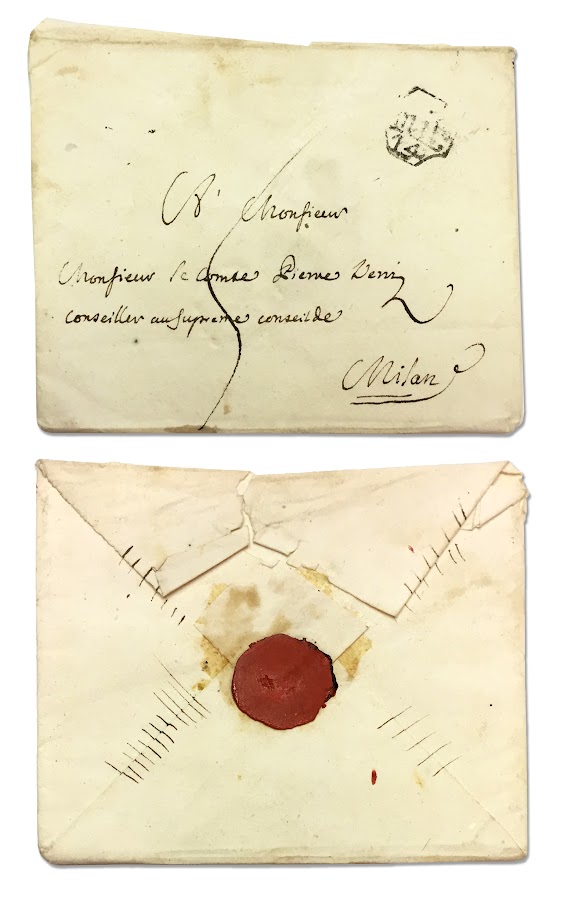 A' Monsieur
Monsieur le Comte Pierre Verri
Conseiller au Supreme conseil de
Milan
14